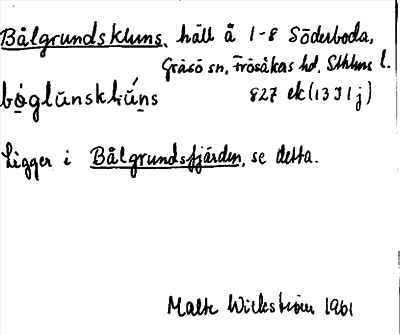 Bålgrundskluns, häll å 1-8 Söderboda,
Gräsö sn, Frösåkers hd, Sthlms l.
bo̱glŭnskḷŭ́ṉs 827 ek (13I1j)
Ligger i Bålgrundsfjärden, se detta.
Malte Wikström 1961